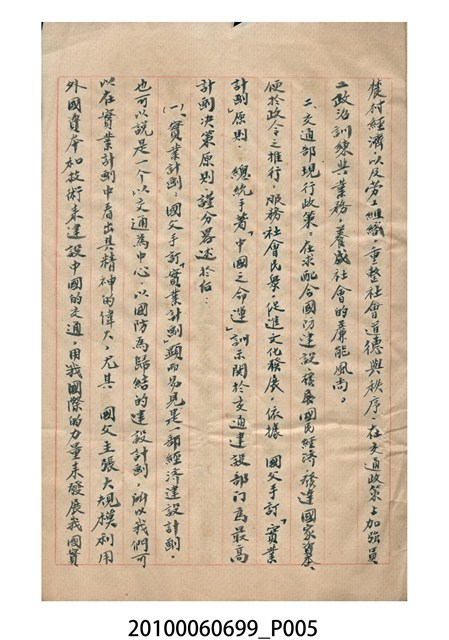 農村經濟，以及勞工組織，重整社會道德與秩序，在交通政策上加強員
工政治訓練與業務，養成社會的廉能風尚。
二、交通部現行政策，在求配合國防建設，發展國民經濟，發達國家資本，
便於政令之推行，服務社會民眾，促進文化發展，依據　國父手訂「實業
計劃」原則　總統手著「中國之命運」訓示關於交通建設部門為最高
計劃決策原則，謹分畧述於后：
(一)、實業計劃：國父手訂「實業計劃」顯而易見是一部經濟建設計劃，
也可以說是一个以交通為中心，以國防為歸結的建設計劃，所以我們可
以在實業計劃中看出其精神的偉大，尤其　國父主張大規模利用
外國資本和技術來建設中國的交通，用我國際的力量來發展我國實
20100060699_P005